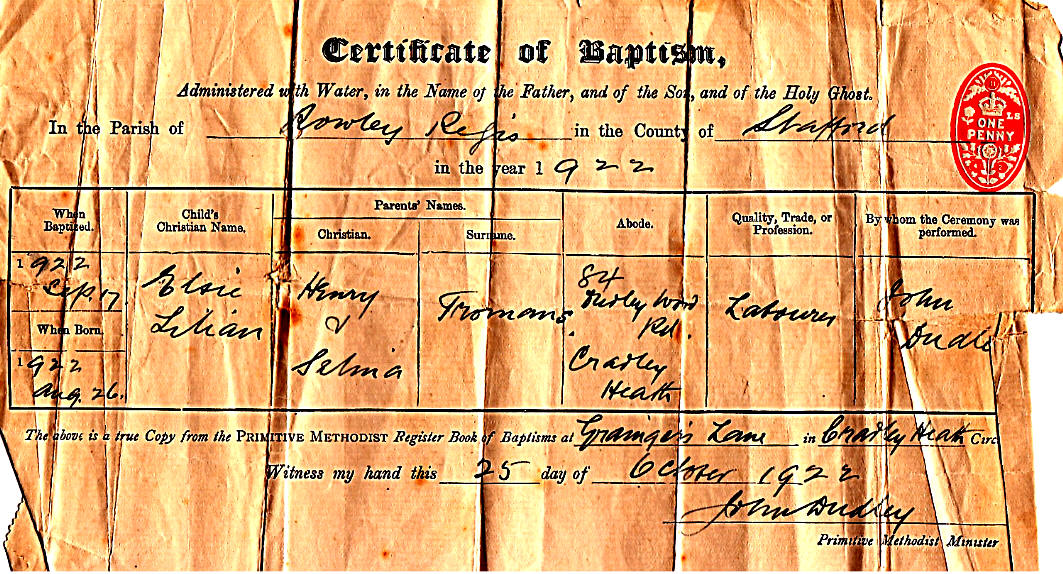 Certificate of Baptism,
Administered with Water, in the Name of the Father, and of the Son, and of the Holy Ghost.
In the Parish of Rowley Regis in the County of Stafford
ONE
PENNY
LS
in the year 1922
When Baptized.
Child's Christian Name.
Parents' Names.
Christian.
Surname.
Abode.
Quality, Trade, or Profession.
By whom the Ceremony was performed.
1922
Sep. 17
When Born.
1922
Aug. 26.
Elsie
Lilian
Henry
&
Selina
Tromans
84
Dudley Wood
Rd.
Cradley
Heath
Labourer
John
Dudle
The above is a true Copy from the PRIMITIVE METHODIST Register Book of Baptisms at Grainger's Lane in Cradley Heath Circ
Witness my hand this 25 day of October 1922
John Dudley
Primitive Methodist Minister